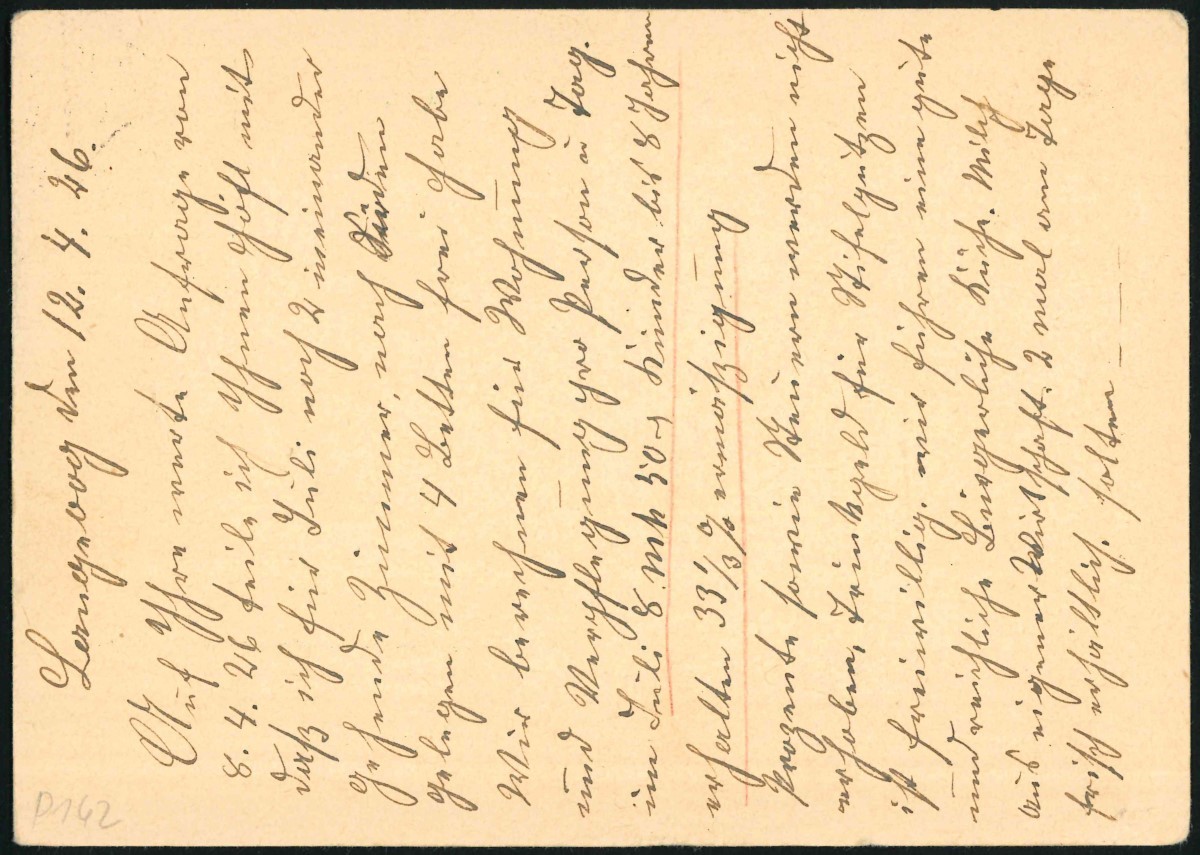 Langeoog den 12. 4. 26.
Auf Ihre werte Anfrage von
8. 4. 26 teile ich Ihnen höfl. mit
daß ich für Juli noch 2 ineinander
gehende Zimmer, nach Süden
gelegen mit 4 Betten frei habe
Wir berechnen für Wohnung
und Verpflegung pro Person u Tag.
im Juli 8 Mk 50 Kinder bis 8 Jahren
erhalten 33 1/3 % ermäszigung
Prozente sowie Steuern werden nicht
erhoben, Trinkgeld für Stifelputzen
ist freiwillig. wir führen eine gute
und reichliche Bürgerliche Küche. Milch
aus eigner Wirtschaft. 2 mal am Tage
frisch erhältlich. sollten
P142